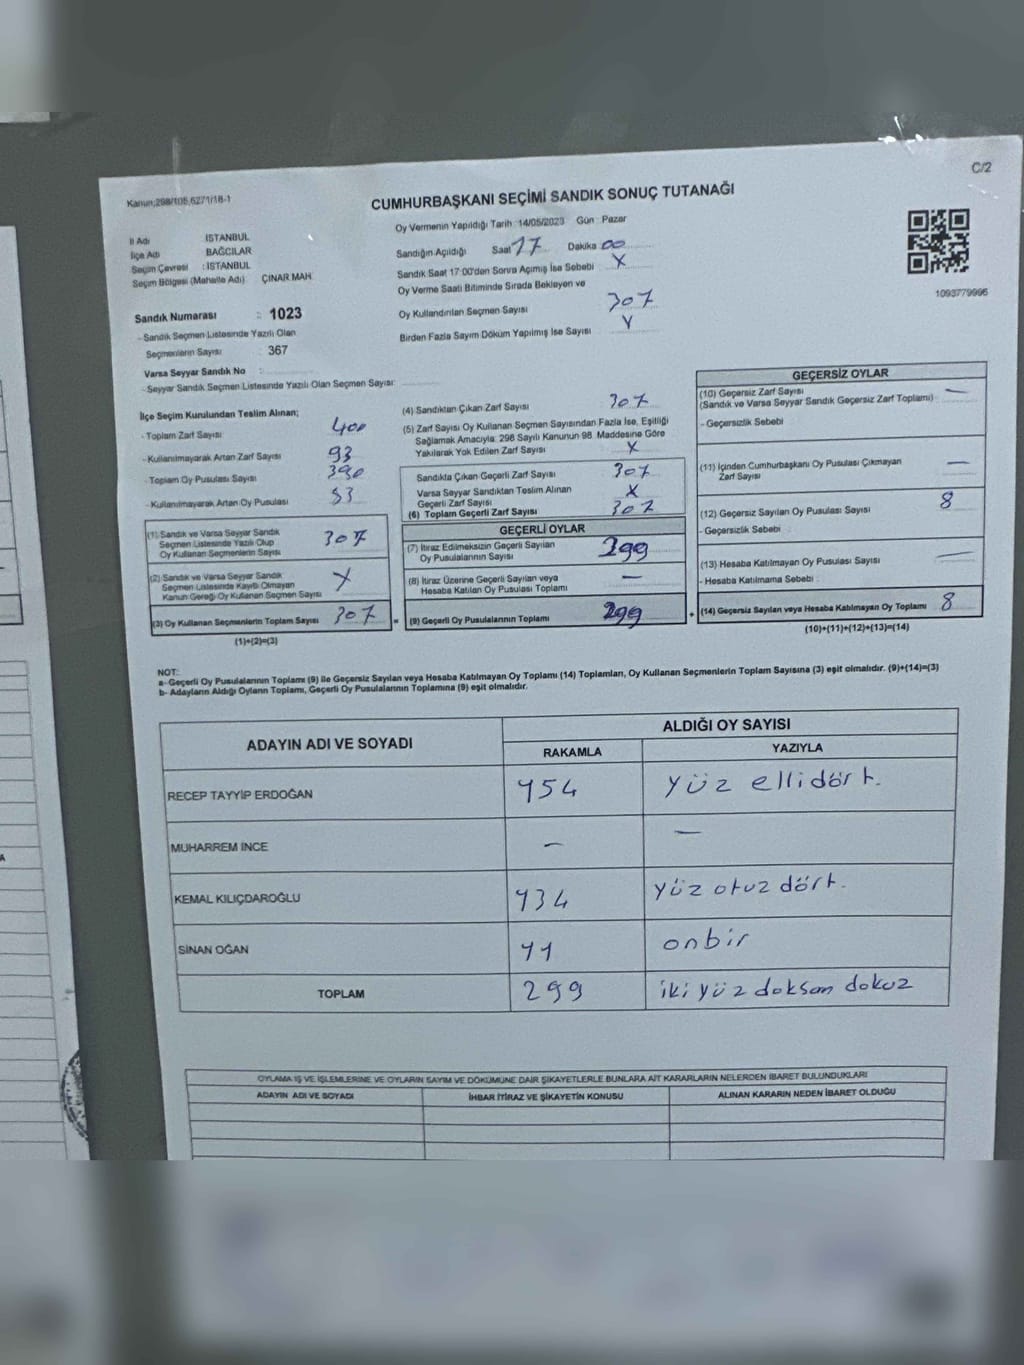 C/2
Kanun;298/105,6271/18-1
CUMHURBAŞKANI SEÇİMİ SANDIK SONUÇ TUTANAĞI
Oy Vermenin Yapıldığı Tarih :14/05/2023 Gün : Pazar
İl Adı İSTANBUL
İlçe Adı BAĞCILAR
Seçim Çevresi : İSTANBUL
Seçim Bölgesi (Mahalle Adı) ÇINAR MAH.
Sandığın Açıldığı Saat 17 Dakika 00
Sandık Saat 17:00'den Sonra Açımış İse Sebebi X
Oy Verme Saati Bitiminde Sırada Bekleyen ve
Oy Kullandırılan Seçmen Sayısı 307
Birden Fazla Sayım Döküm Yapılmış İse Sayısı Y
1093779996
Sandık Numarası : 1023
- Sandık Seçmen Listesinde Yazılı Olan
Seçmenlerin Sayısı : 367
Varsa Seyyar Sandık No :
- Seyyar Sandık Seçmen Listesinde Yazılı Olan Seçmen Sayısı:
İlçe Seçim Kurulundan Teslim Alınan;
- Toplam Zarf Sayısı 400
- Kullanılmayarak Artan Zarf Sayısı 93
- Toplam Oy Pusulası Sayısı 390
- Kullanılmayarak Artan Oy Pusulası 83
(1) Sandık ve Varsa Seyyar Sandık
Seçmen Listesinde Yazılı Olup
Oy Kullanan Seçmenlerin Sayısı 307
(2) Sandık ve Varsa Seyyar Sandık
Seçmen Listesinde Kayıtlı Olmayan
Kanun Gereği Oy Kullanan Seçmen Sayısı X
(3) Oy Kullanan Seçmenlerin Toplam Sayısı 307
(1)+(2)=(3)
(4) Sandıktan Çıkan Zarf Sayısı 307
(5) Zarf Sayısı Oy Kullanan Seçmen Sayısından Fazla İse, Eşitliği
Sağlamak Amacıyla: 298 Sayılı Kanunun 98. Maddesine Göre
Yakılarak Yok Edilen Zarf Sayısı X
Sandıkta Çıkan Geçerli Zarf Sayısı 307
Varsa Seyyar Sandıktan Teslim Alınan
Geçerli Zarf Sayısı X
(6) Toplam Geçerli Zarf Sayısı 307
GEÇERLİ OYLAR
(7) İtiraz Edilmeksizin Geçerli Sayılan
Oy Pusulalarının Sayısı 299
(8) İtiraz Üzerine Geçerli Sayılan veya
Hesaba Katılan Oy Pusulası Toplamı —
= (9) Geçerli Oy Pusulalarının Toplamı 299
GEÇERSİZ OYLAR
(10) Geçersiz Zarf Sayısı —
(Sandık ve Varsa Seyyar Sandık Geçersiz Zarf Toplamı) :
- Geçersizlik Sebebi :
(11) İçinden Cumhurbaşkanı Oy Pusulası Çıkmayan
Zarf Sayısı —
(12) Geçersiz Sayılan Oy Pusulası Sayısı 8
- Geçersizlik Sebebi :
(13) Hesaba Katılmayan Oy Pusulası Sayısı —
- Hesaba Katılmama Sebebi :
+ (14) Geçersiz Sayılan veya Hesaba Katılmayan Oy Toplamı 8
(10)+(11)+(12)+(13)=(14)
NOT:
a- Geçerli Oy Pusulalarının Toplamı (9) ile Geçersiz Sayılan veya Hesaba Katılmayan Oy Toplamı (14) Toplamları, Oy Kullanan Seçmenlerin Toplam Sayısına (3) eşit olmalıdır. (9)+(14)=(3)
b- Adayların Aldığı Oyların Toplamı, Geçerli Oy Pusulalarının Toplamına (9) eşit olmalıdır.
ADAYIN ADI VE SOYADI ALDIĞI OY SAYISI
RAKAMLA YAZIYLA
RECEP TAYYİP ERDOĞAN 154 yüz ellidört.
MUHARREM İNCE — —
KEMAL KILIÇDAROĞLU 134 yüz otuz dört.
SİNAN OĞAN 11 onbir
TOPLAM 299 iki yüz doksan dokuz
OYLAMA İŞ VE İŞLEMLERİNE VE OYLARIN SAYIM VE DÖKÜMÜNE DAİR ŞİKAYETLERLE BUNLARA AİT KARARLARIN NELERDEN İBARET BULUNDUKLARI
ADAYIN ADI VE SOYADI İHBAR İTİRAZ VE ŞİKAYETİN KONUSU ALINAN KARARIN NEDEN İBARET OLDUĞU